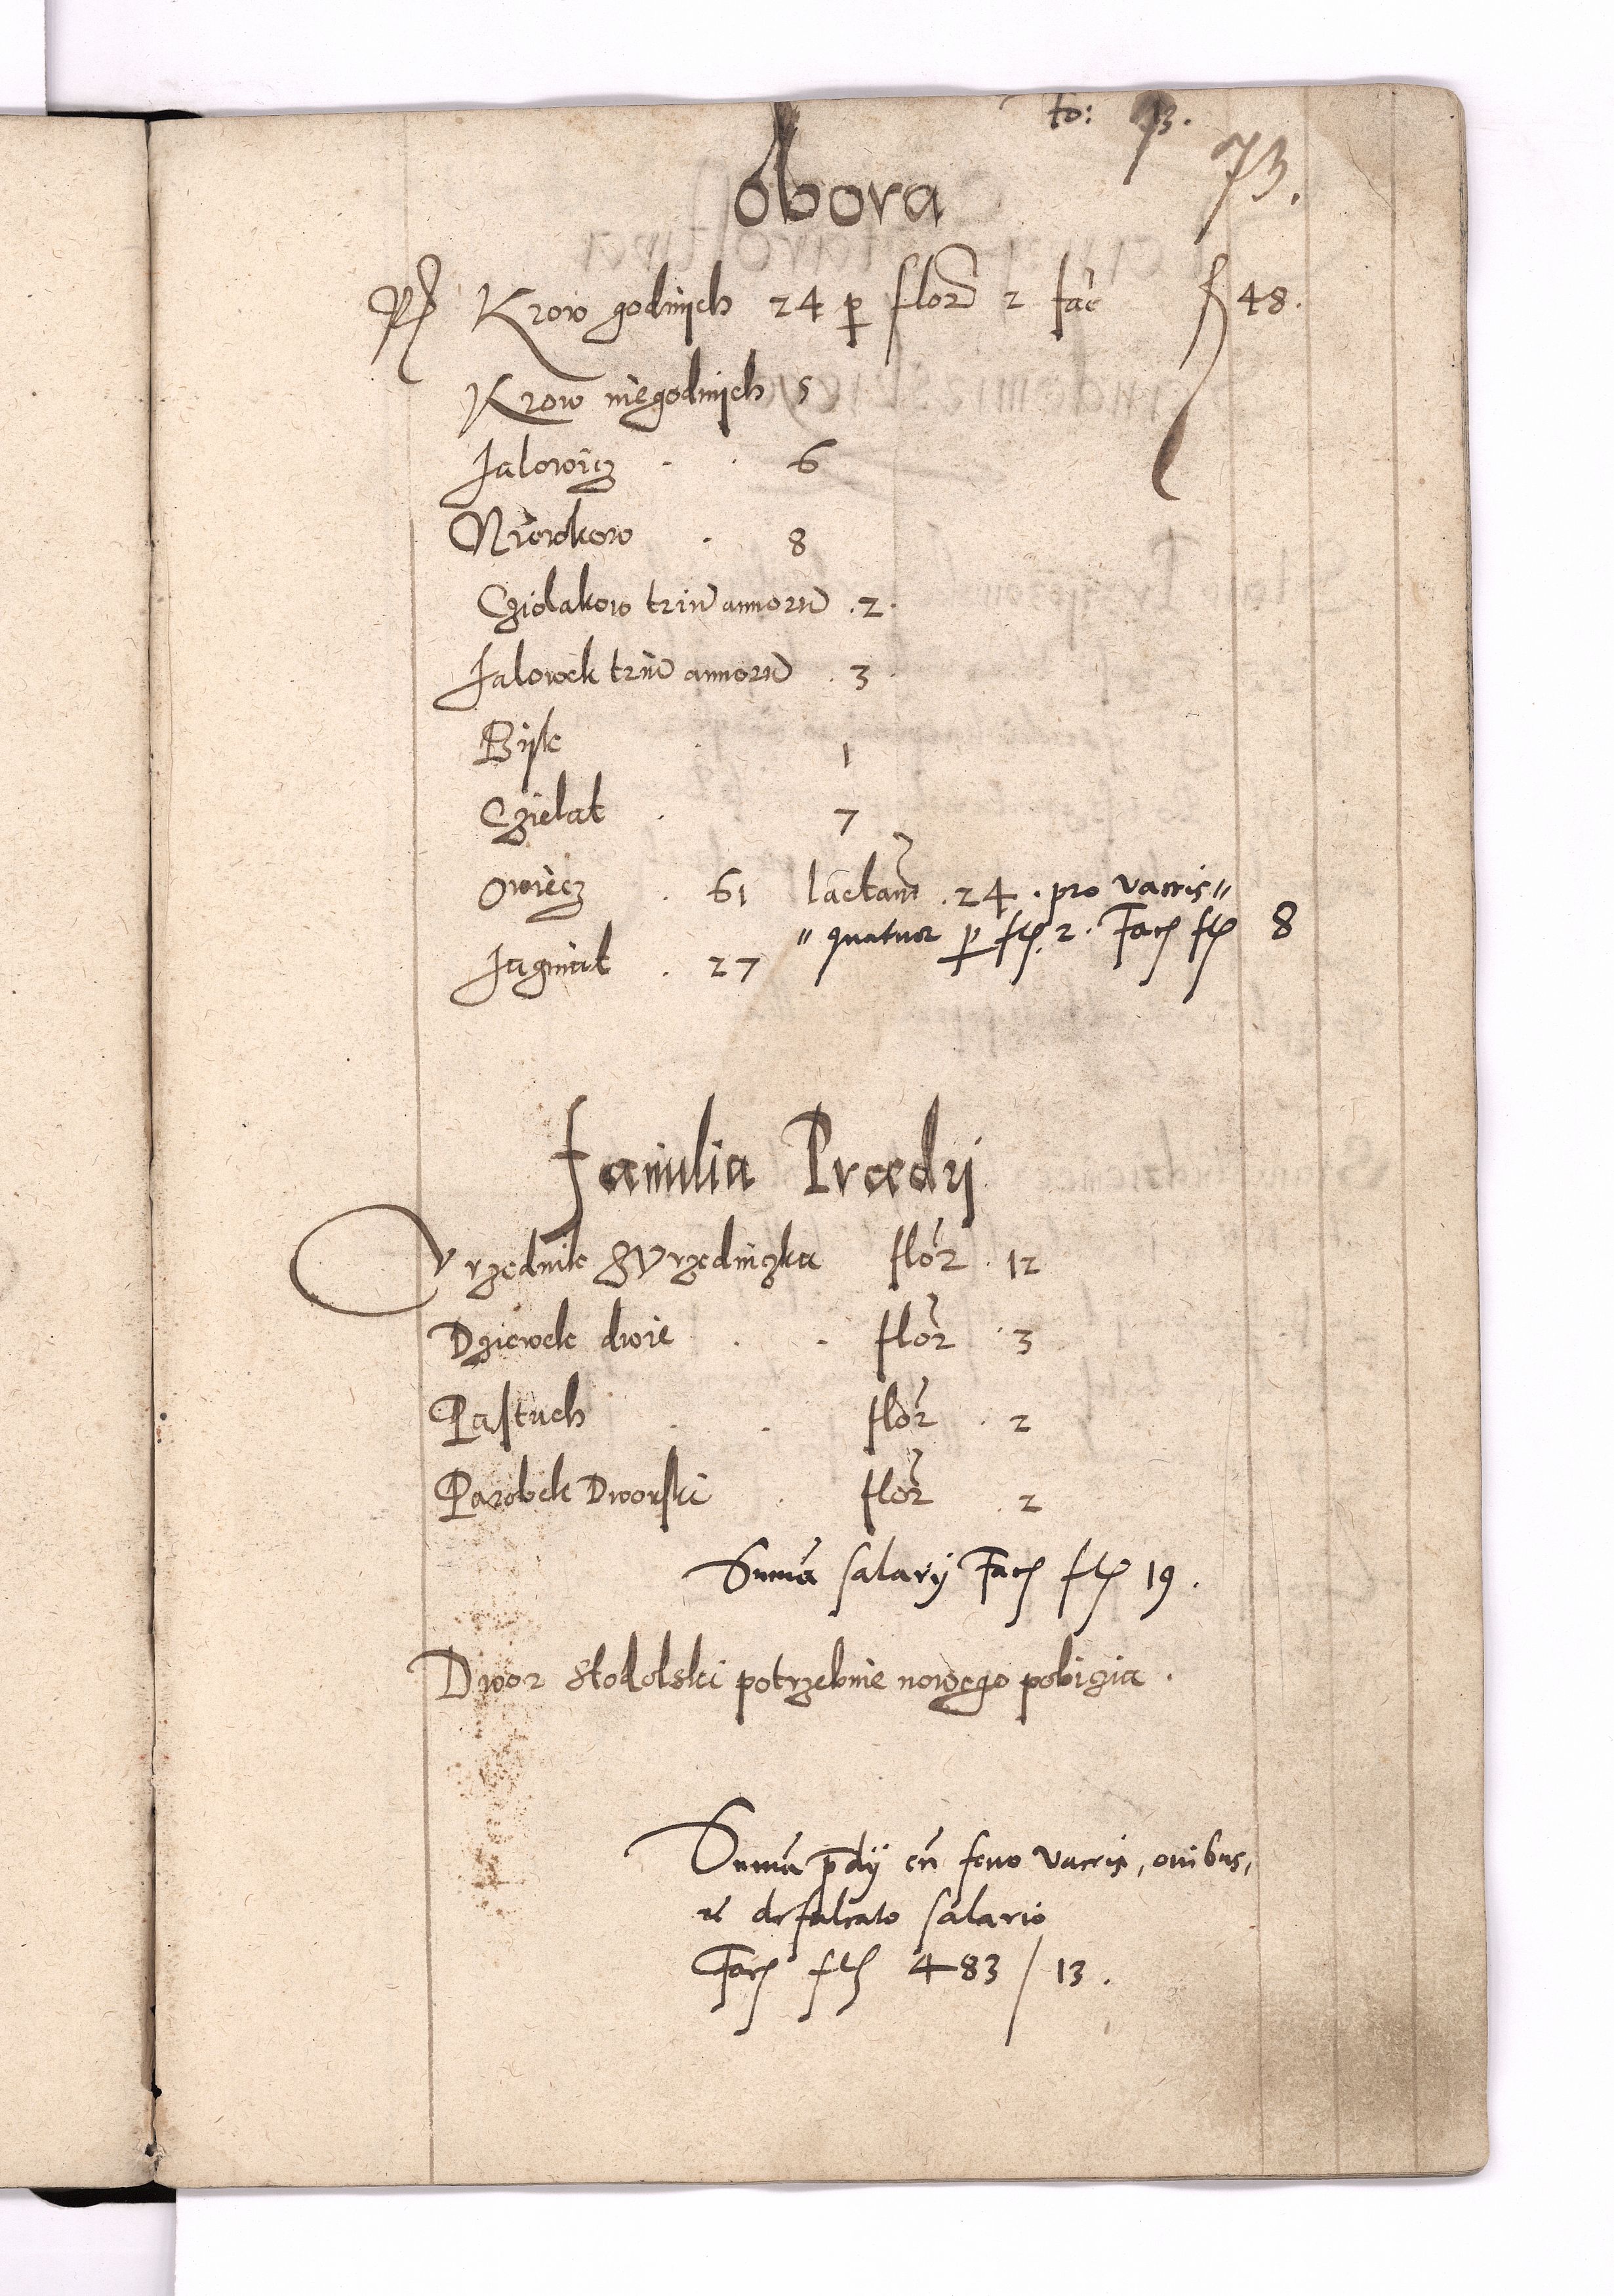 fo: 73.
73.
obora
Krow godnijch 24 p flor 2 fac f 48.
Krow niegodnijch 5
Jalowicz . . 6
. 8
Cziolakow triu annoru . 2 .
Jalowek triu annoru . 3
Bijk . 1
Czielat . 7
owiecz . 61 lactan . 24 . pro vaccis "
" quatuor p fl. 2 . Fac fl 8
Jagniat . 27
Familia Praedij
Vrzednik z Vrzedniczka flor . 12
Dziewek dwie . . flor . 3
Pastuch . . flor . 2
Parobek Dworski . flor . 2
Suma salarij Fac fl 19 .
Dwor Stodolski potrzebuie nowego pobiczia .
Suma pdij cu feno vaccis, ouibus,
et defalcato salario
Fac fl 483 / 13 .